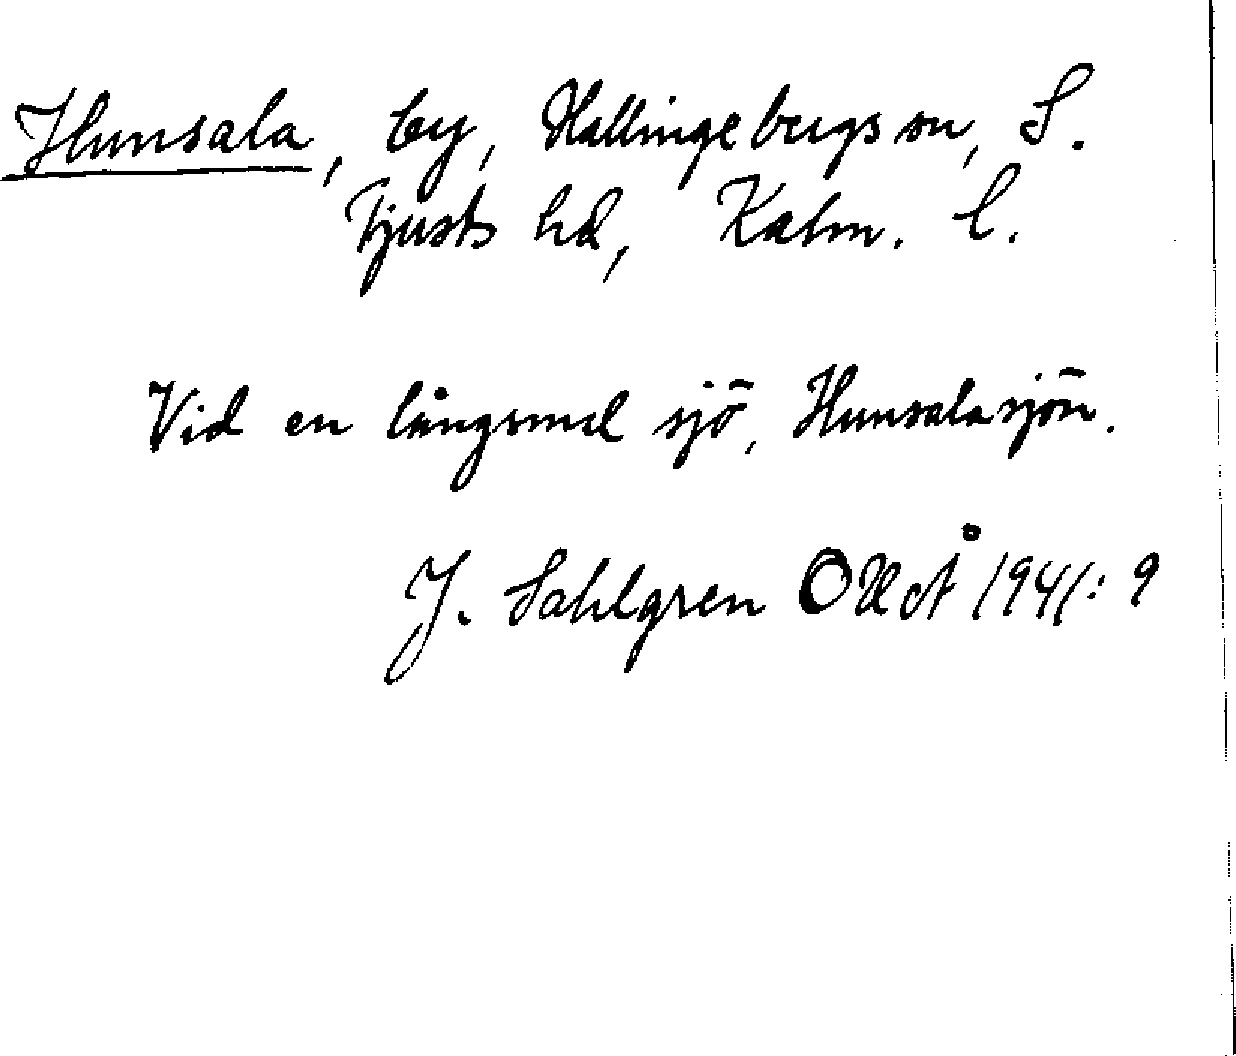 Hunsala, by, Hallingebergs sn, S.
Tjusts hd, Kalm. l.
Vid en långsmal sjö, Hunsalasjön.
J. Sahlgren OUÅ 1941: 9